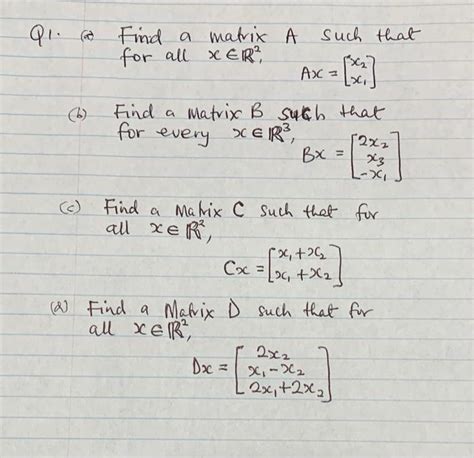 Q1. (a) Find a matrix A such that
for all x ∈ ℝ²,
Ax = [x₂
x₁]
(b) Find a Matrix B such that
for every x ∈ ℝ³,
Bx = [2x₂
x₃
-x₁]
(c) Find a Matrix C such that for
all x ∈ ℝ²,
Cx = [x₁ + x₂
x₁ + x₂]
(d) Find a Matrix D such that for
all x ∈ ℝ²,
Dx = [2x₂
x₁ - x₂
2x₁ + 2x₂]